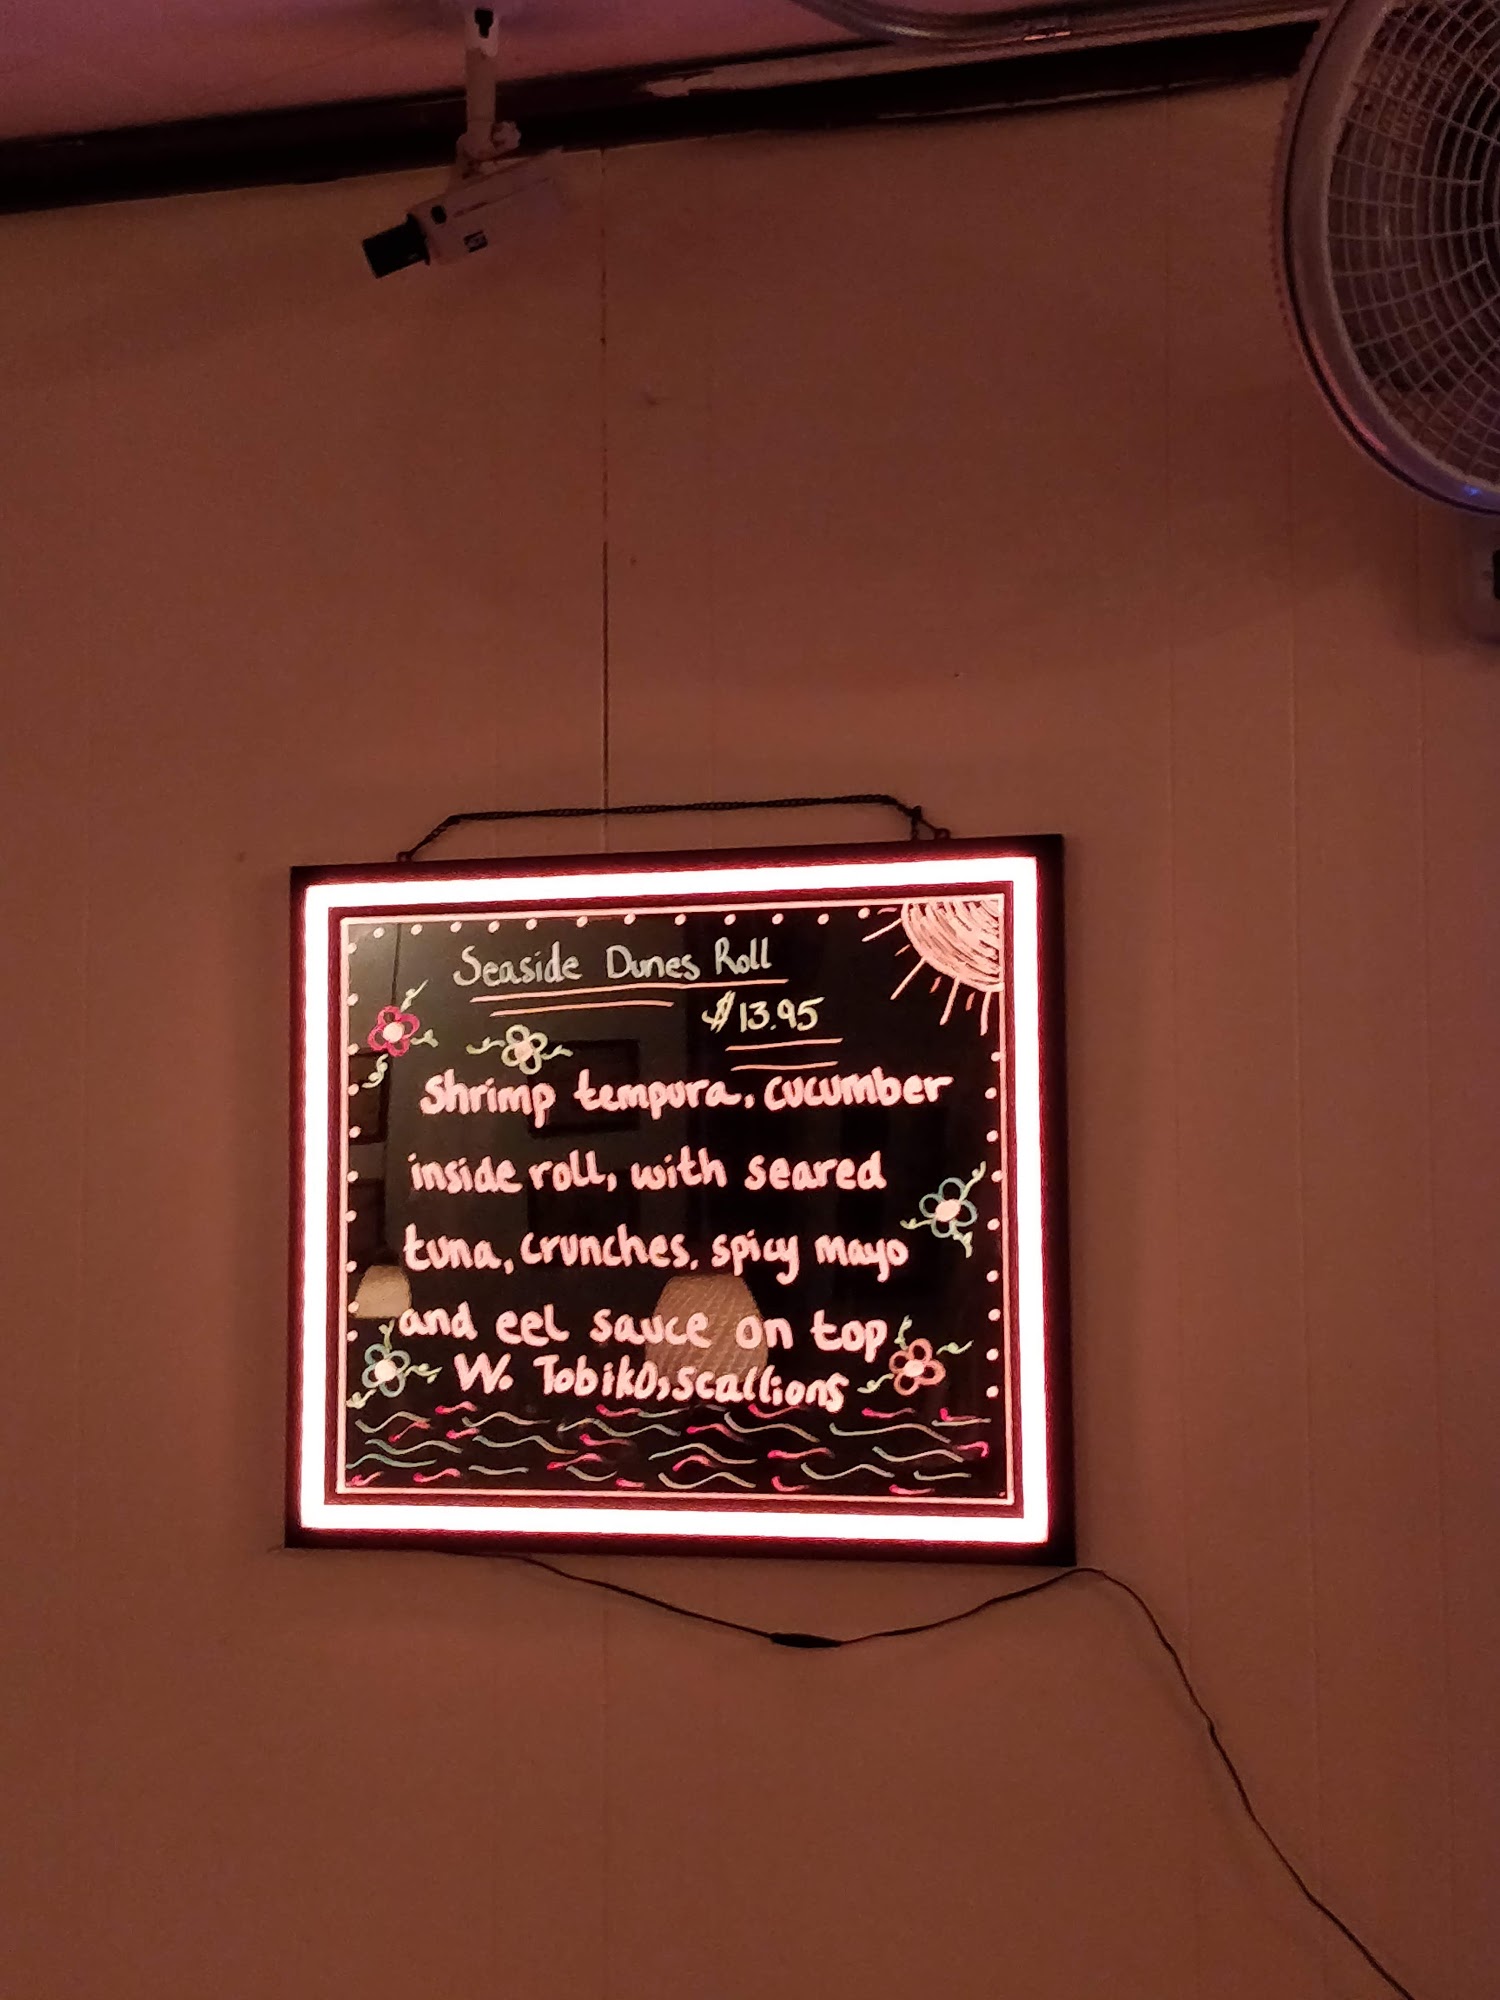 Seaside Dunes Roll
$13.95
Shrimp tempura, cucumber
inside roll, with seared
tuna, crunches, spicy mayo
and eel sauce on top
W. Tobiko, scallions